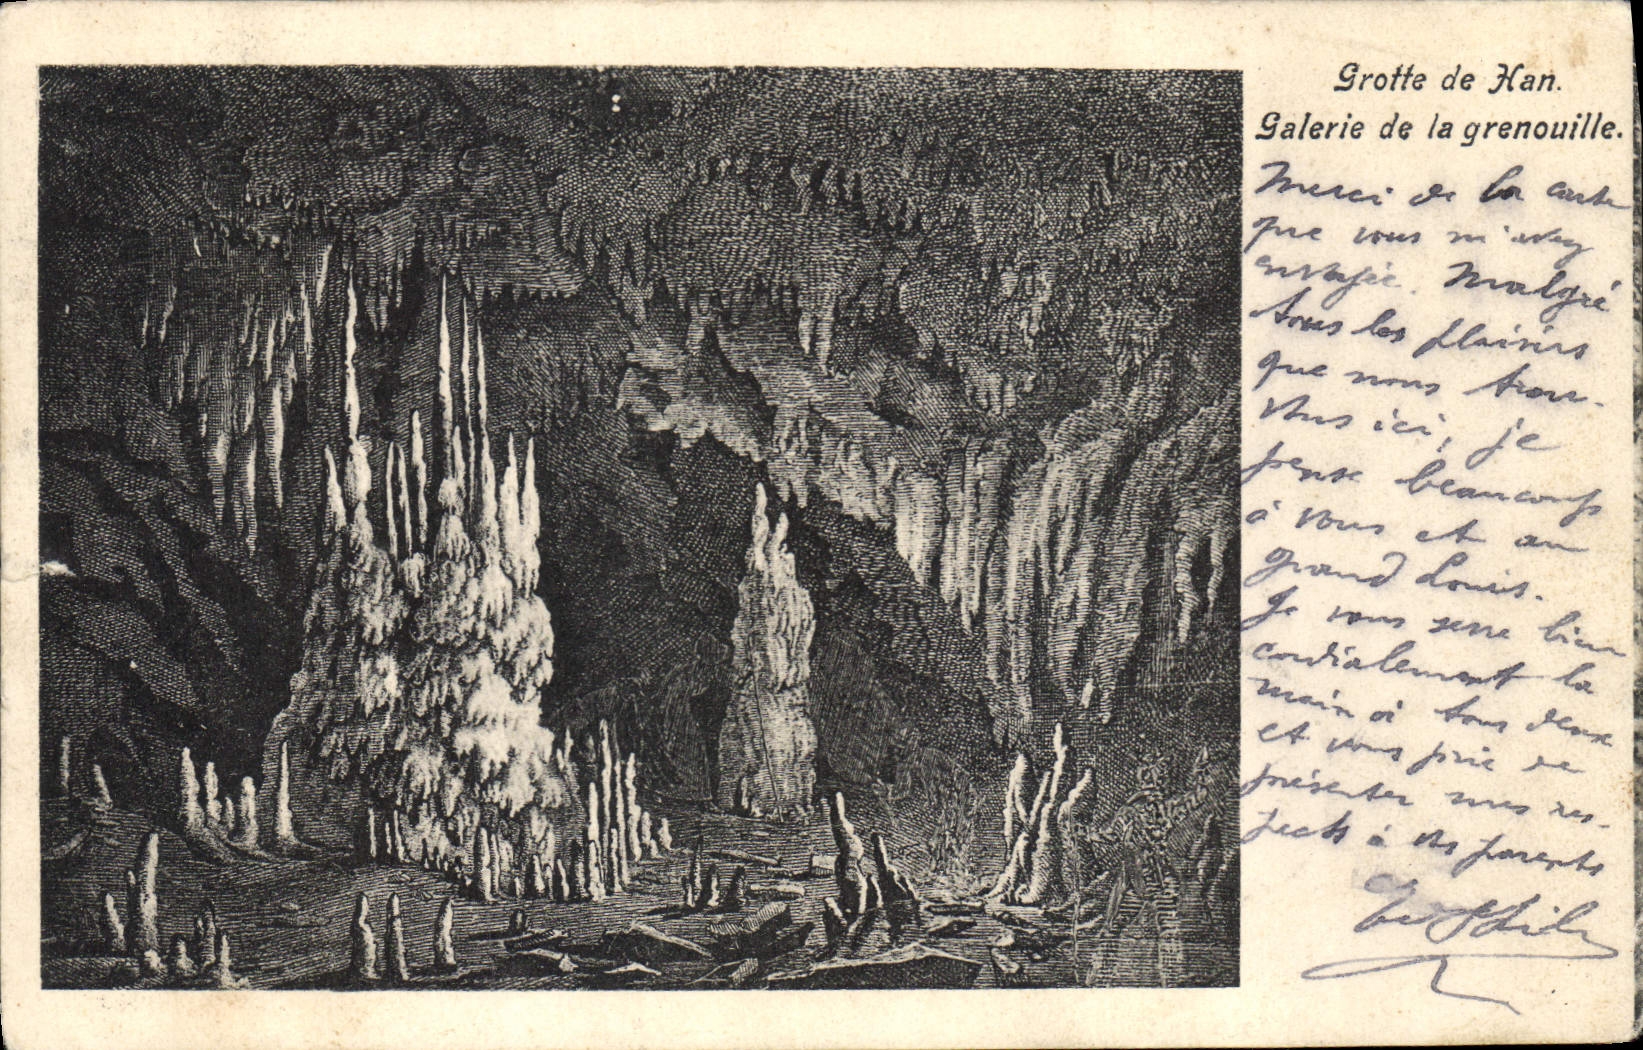 Grotte de Han.
Galerie de la grenouille.
Merci de la carte
que vous m'avez
envoyée. Malgré
tous les plaisirs
que nous trou-
vons ici, je
pense beaucoup
à vous et au
grand Louis.
Je vous serre bien
cordialement la
main à tous deux
et vous prie de
présenter mes res-
pects à vos parents